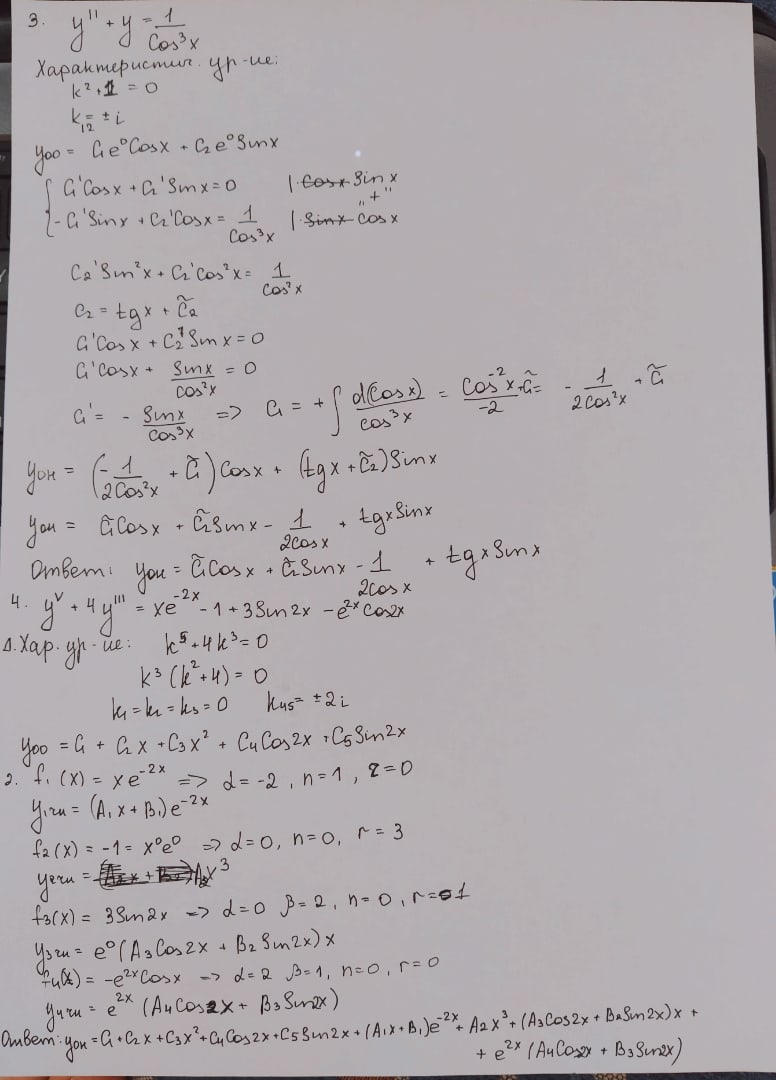 3. y'' + y = 1/Cos³x
Характеристич. ур-ие:
k² + 1 = 0
k₁₂ = ± i
yоо = C₁e⁰Cosx + C₂e⁰Sinx
{ C₁'Cosx + C₂'Sinx = 0 | Cosx Sinx
"+"
- C₁'Sinx + C₂'Cosx = 1/Cos³x | Sinx Cosx
C₂'Sin²x + C₂'Cos²x = 1/Cos²x
C₂ = tgx + C̃₂
C₁'Cosx + C₂'Sinx = 0
C₁'Cosx + Sinx/cos²x = 0
C₁' = - Sinx/Cos³x => C₁ = + ∫ d(Cosx)/cos³x = Cos⁻²x/-2 + C̃₁ = - 1/2Cos²x + C̃₁
yон = (- 1/2Cos²x + C̃₁) Cosx + (tgx + C̃₂) Sinx
yон = C̃₁Cosx + C̃₂Sinx - 1/2cosx + tgx Sinx
Ответ: yон = C̃₁Cosx + C̃₂Sinx - 1/2cosx + tgx Sinx
4. yⱽ + 4y''' = xe⁻²ˣ - 1 + 3Sin2x - e²ˣ Cos2x
1. Хар. ур-ие: k⁵ + 4k³ = 0
k³(k² + 4) = 0
k₁ = k₂ = k₃ = 0 k₄₅ = ± 2i
yоо = C₁ + C₂x + C₃x² + C₄Cos2x + C₅Sin2x
2. f₁(x) = xe⁻²ˣ => d = -2, n = 1, r = 0
y₁чн = (A₁x + B₁)e⁻²ˣ
f₂(x) = -1 = x⁰e⁰ => d = 0, n = 0, r = 3
y₂чн = A₂x³
f₃(x) = 3Sin2x => d = 0 β = 2, n = 0, r = 1
y₃чн = e⁰(A₃Cos2x + B₂Sin2x)x
f₄(x) = -e²ˣCosx => d = 2 β = 1, n = 0, r = 0
y₄чн = e²ˣ (A₄Cos2x + B₃Sin2x)
Ответ: yон = C₁ + C₂x + C₃x² + C₄Cos2x + C₅Sin2x + (A₁x + B₁)e⁻²ˣ + A₂x³ + (A₃Cos2x + B₂Sin2x)x +
+ e²ˣ (A₄Cos2x + B₃Sin2x)